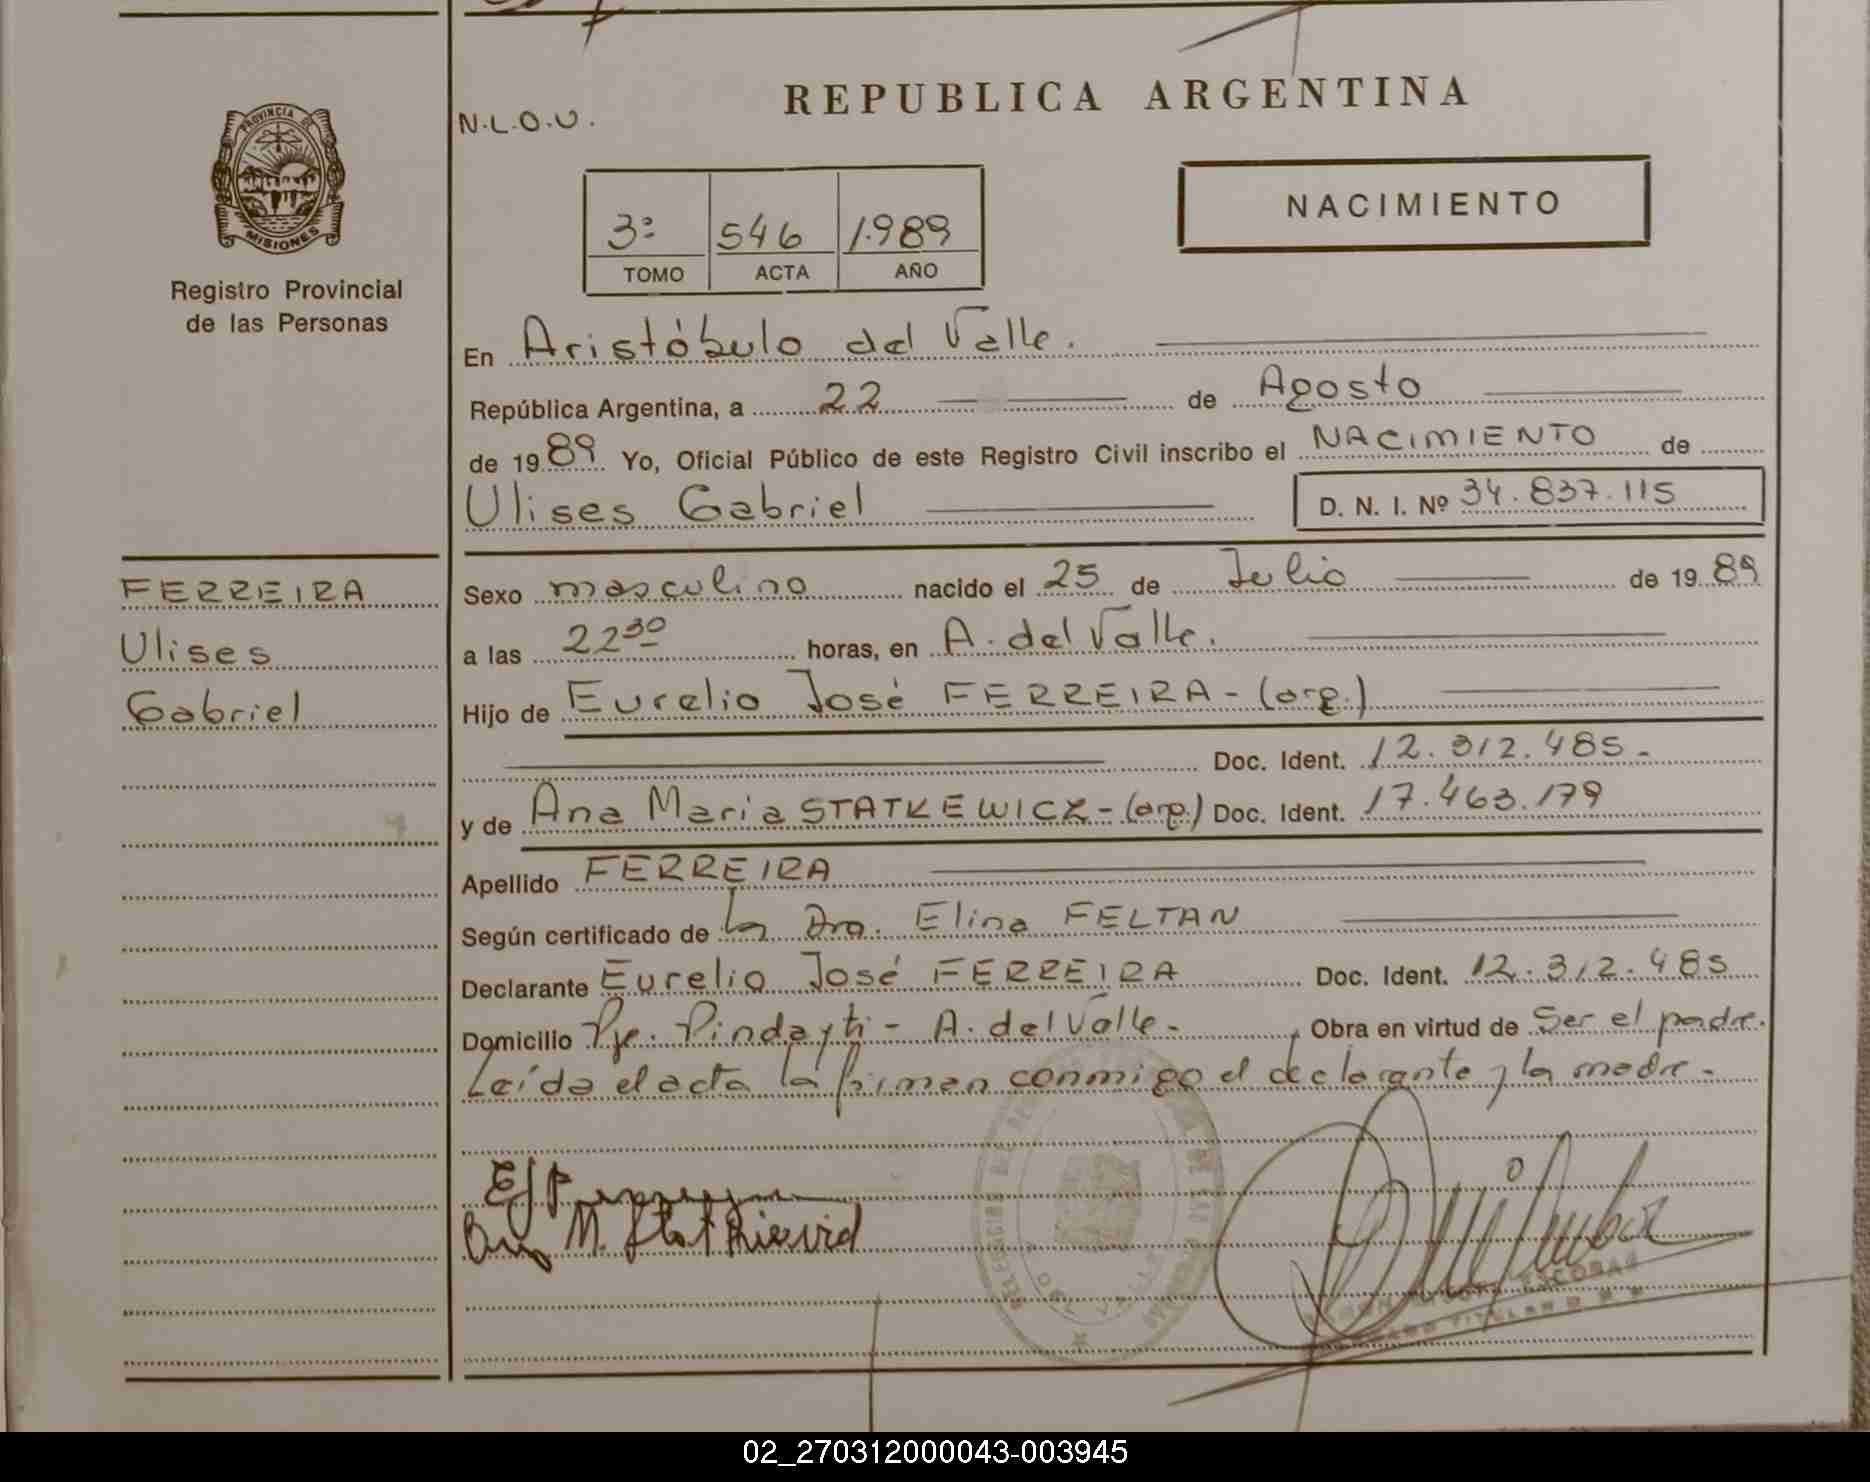 REPUBLICA ARGENTINA
N.L.O.U.
PROVINCIA DE
MISIONES
Registro Provincial
de las Personas
3º 546 1.989
TOMO ACTA AÑO
NACIMIENTO
En Aristóbulo del Valle.
República Argentina, a 22 de Agosto
de 1989 Yo, Oficial Público de este Registro Civil inscribo el NACIMIENTO de
Ulises Gabriel D. N. I. Nº 34.837.115
FERREIRA
Ulises
Gabriel
Sexo masculino nacido el 25 de Julio de 1989
a las 22 30 horas, en A. del Valle.
Hijo de Eurelio José FERREIRA - (arg.)
Doc. Ident. 12.312.485.-
y de Ana Maria STATKEWICZ - (arg.) Doc. Ident. 17.463.179
Apellido FERREIRA
Según certificado de la Dra. Elina FELTAN
Declarante Eurelio José FERREIRA Doc. Ident. 12.312.485
Domicilio Pje. Pindayti - A. del Valle - , Obra en virtud de Ser el padre.
Leída el acta la firman conmigo el declarante y la madre -
ESCOBAR
TITULAR
02_270312000043-003945